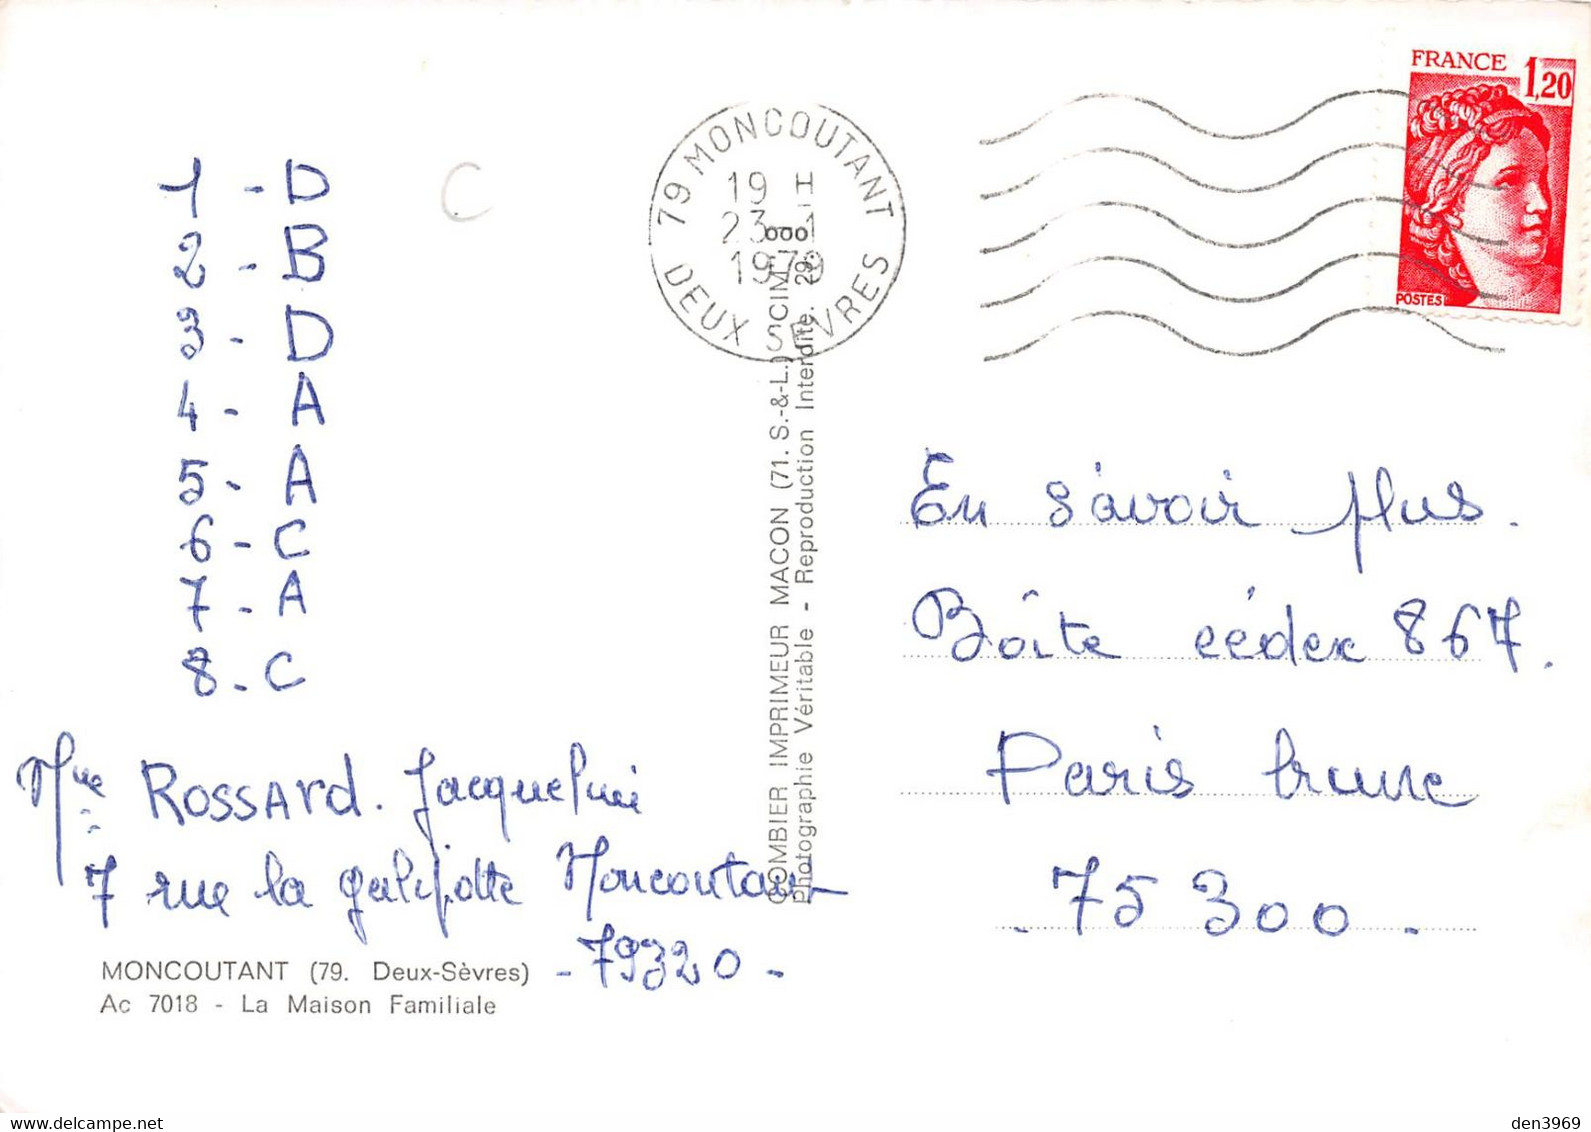 FRANCE 1,20
POSTES
79 MONCOUTANT
19 H
23 - 1
1979
DEUX SEVRES
C
1 - D
2 - B
3 - D
4 - A
5 - A
6 - C
7 - A
8 - C
Mme ROSSARd. Jacqueline
7 rue la galipotte Moncoutant
- 79320 -
MONCOUTANT (79. Deux-Sèvres)
Ac 7018 - La Maison Familiale
COMBIER IMPRIMEUR MACON (71. S.-&-L.) SCIM
Photographie Véritable - Reproduction Interdite. 29.
En savoir plus.
Boîte cédex 867.
Paris brune
. 75 300 .
den3969